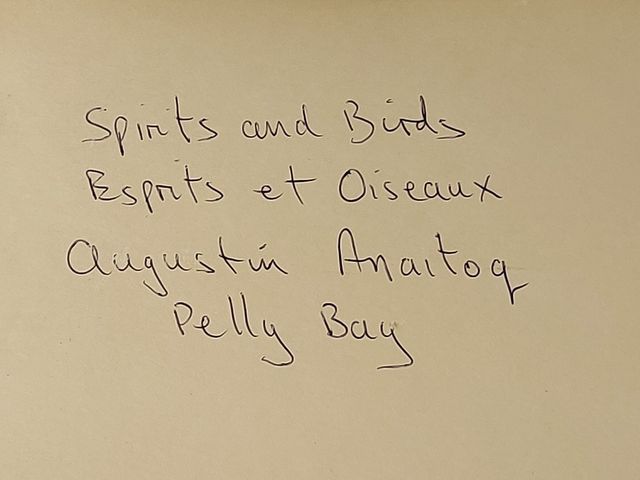 Spirits and Birds
Esprits et Oiseaux
Augustin Anaitoq
Pelly Bay